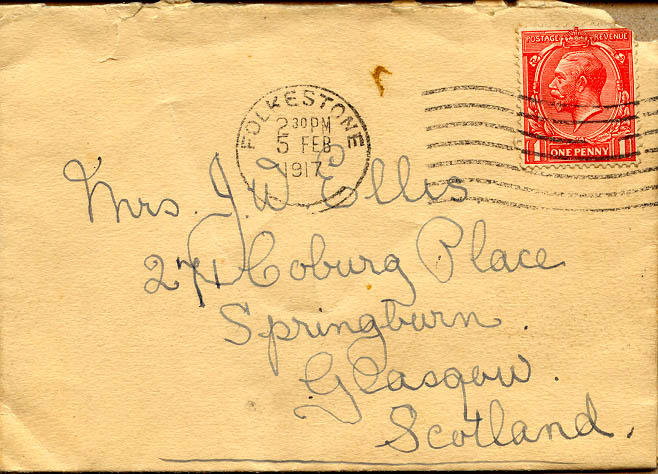 POSTAGE REVENUE
ONE PENNY
FOLKESTONE
2 30 PM
5 FEB
1917
Mrs. J. W. Ellis
271 Coburg Place
Springburn.
Glasgow.
Scotland.